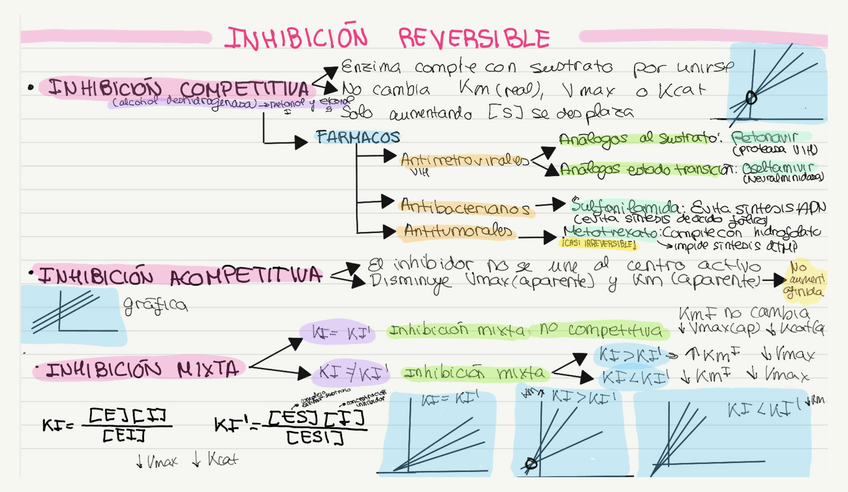 INHIBICIÓN REVERSIBLE
• INHIBICIÓN COMPETITIVA
(alcohol deshidrogenasa) → metanol y etanol
Enzima compite con sustrato por unirse
No cambia Km (real), Vmax o Kcat
Solo aumentando [S] se desplaza
FÁRMACOS
Antirretrovirales
VIH
Análogos al sustrato: Retonavir
(proteasa VIH)
Análogos estado transición: Oseltamivir
(Neuraminidasa)
Antibacterianos
Sulfanilamida: Evita síntesis ADN
(evita síntesis de ácido fólico)
Antitumorales
Metotrexato: Compite con hidrofolato
(CASI IRREVERSIBLE)
→ impide síntesis dTMP
• INHIBICIÓN ACOMPETITIVA
El inhibidor no se une al centro activo
Disminuye Vmax (aparente) y Km (aparente)
No aumenta afinidad
gráfica
• INHIBICIÓN MIXTA
KI = KI'
Inhibición mixta no competitiva
KmI no cambia
↓ Vmax(ap) ↓ Kcat
KI ≠ KI'
Inhibición mixta
KI > KI' → ↑ KmI ↓ Vmax
KI < KI' ↓ KmI ↓ Vmax
KI = [E][I] / [EI]
KI' = [ES][I] / [ESI]
↓ Vmax ↓ Kcat
KI = KI'
KI > KI'
KI < KI' ↓ Km